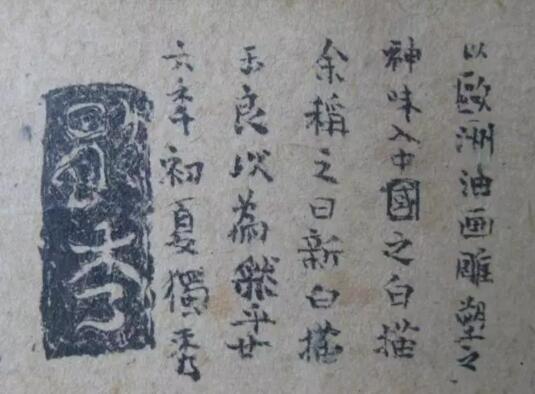 以歐洲油画雕塑之
神味入中國之白描
余稱之曰新白描
玉良以爲然乎廿
六季初夏獨秀
獨秀